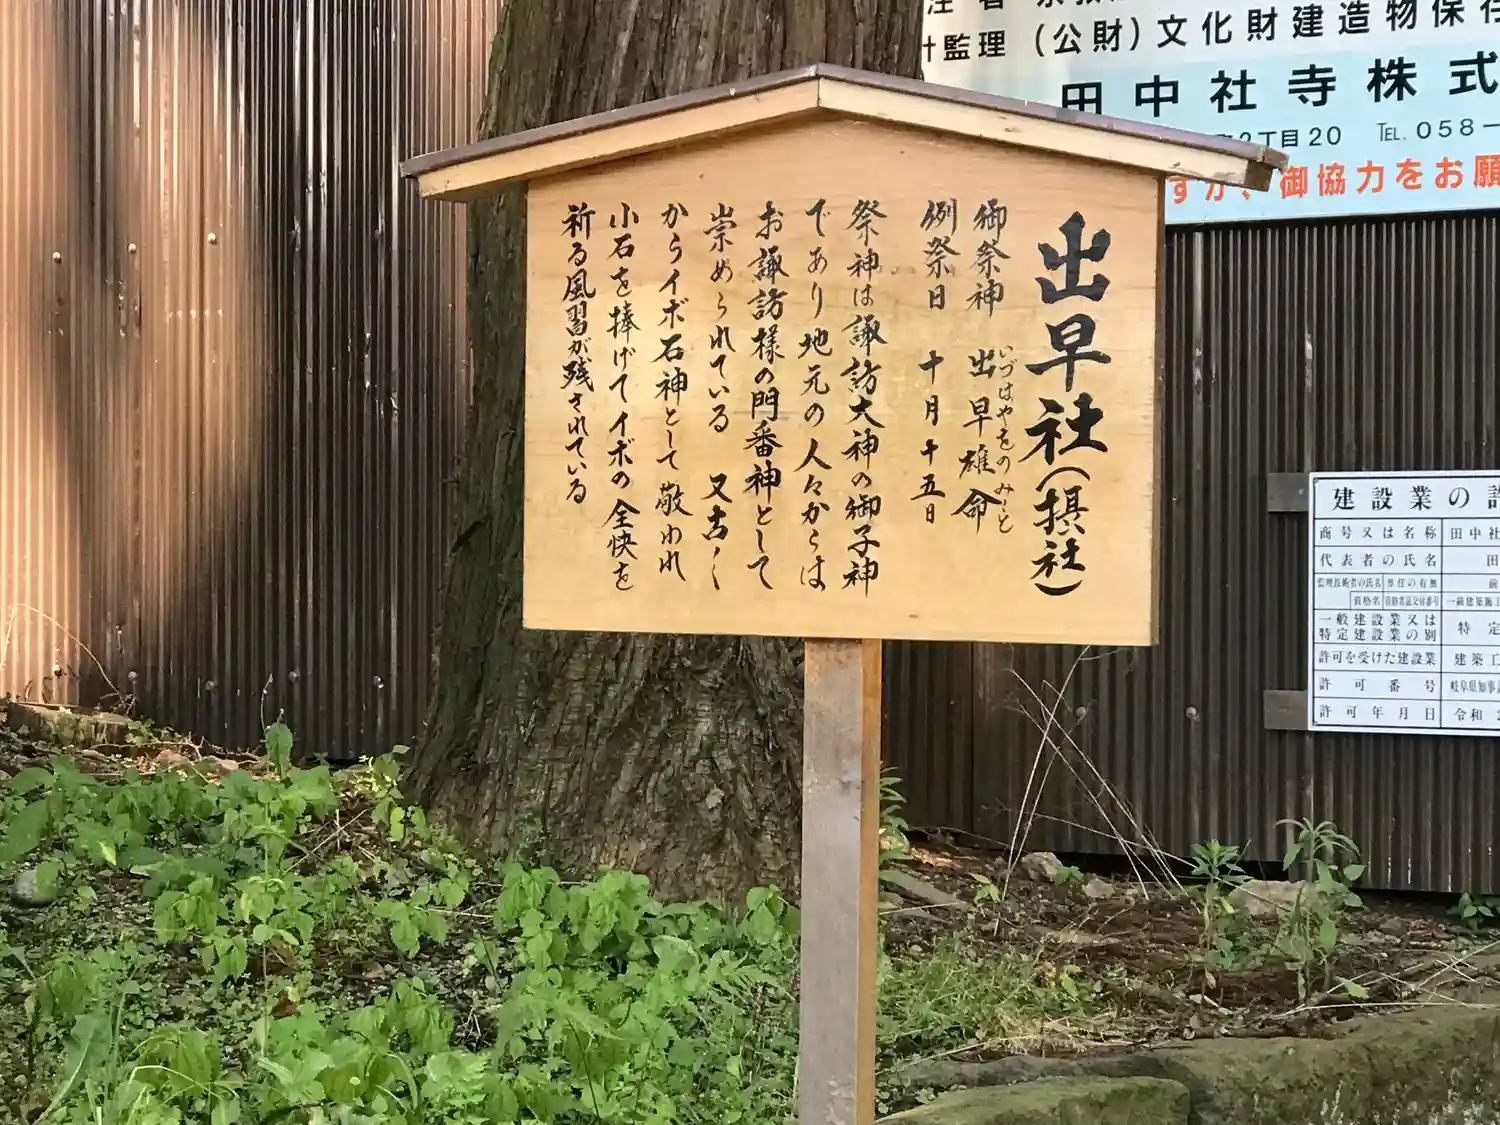 出早社(摂社)
御祭神 出早雄命
いづはやをのみこと
例祭日 十月十五日
祭神は諏訪大神の御子神
であり地元の人々からは
お諏訪様の門番神として
崇められている 又古くく
からイボ石神として敬われ
小石を捧げてイボの全快を
祈る風習が残されている
監理 (公財)文化財建造物保存
田中社寺株式
2丁目20 TEL.058-
すが、御協力をお願
建設業の許
商号又は名称 田中社
代表者の氏名 田
監理技術者の氏名 専任の有無 前
資格名 資格者証交付番号 一級建築施工
一般建設業又は
特定建設業の別 特定
許可を受けた建設業 建築工
許可番号 岐阜県知事
許可年月日 令和